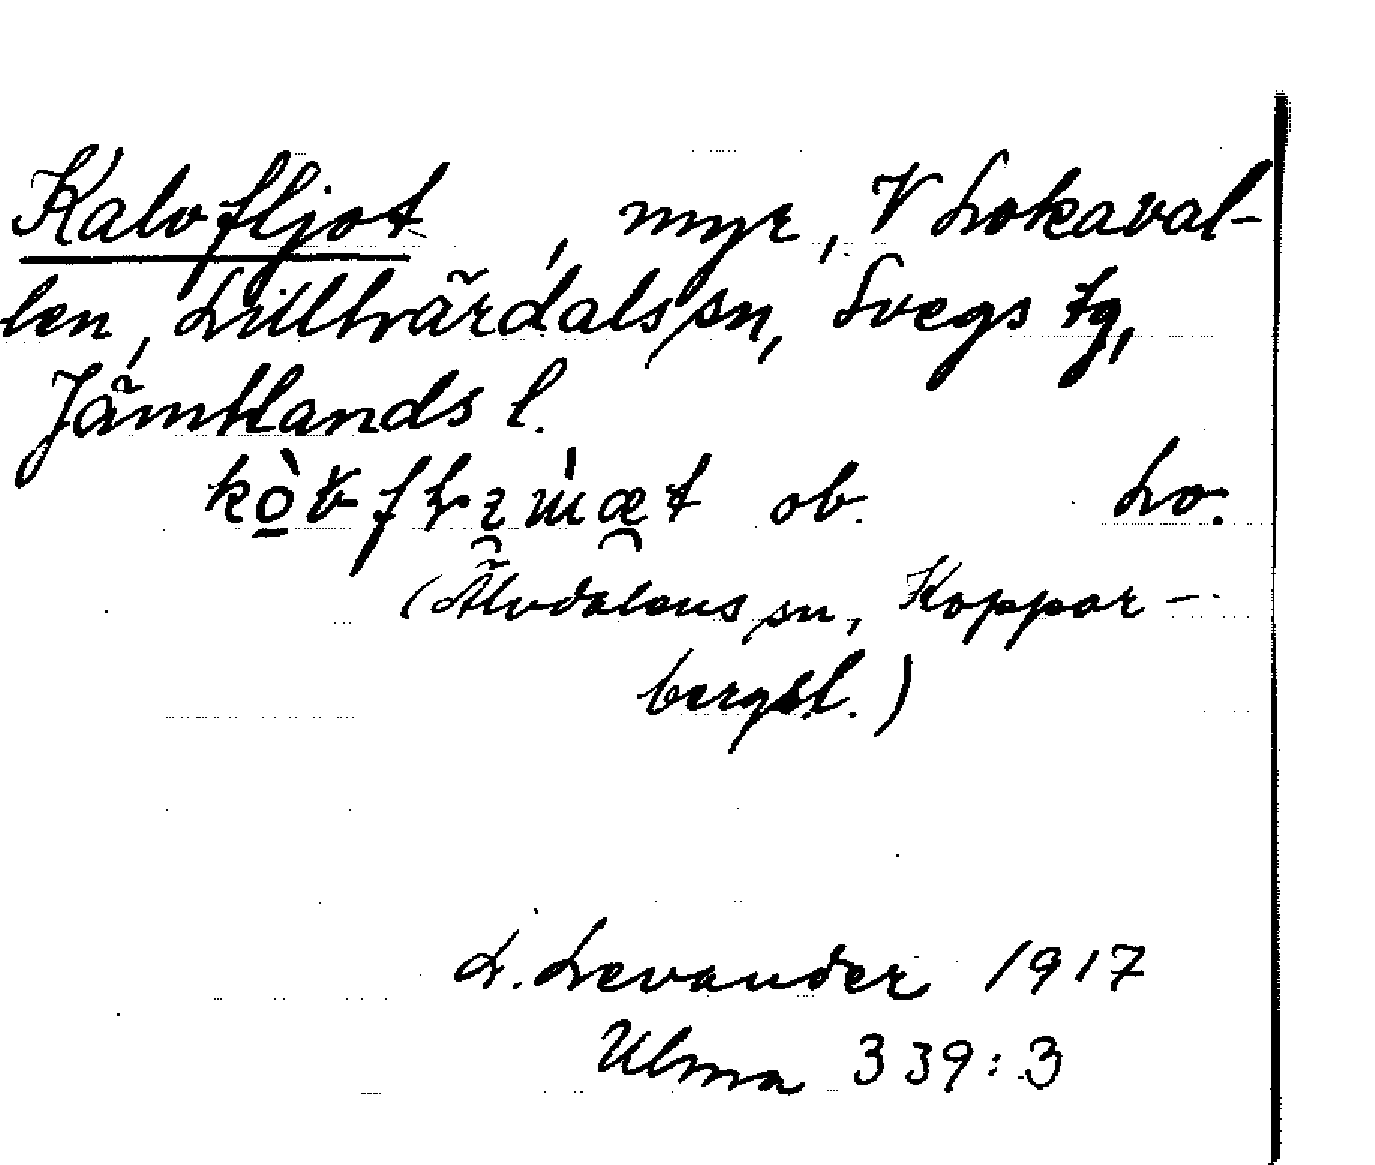 Kalvfljot, myr, V Lokaval-
len, Lillhärdals sn, Svegs tg,
Jämtlands l.
ob. Lo.
(Älvdalens sn, Koppar-
bergs l.)
L. Levander 1917
Ulma 339:3